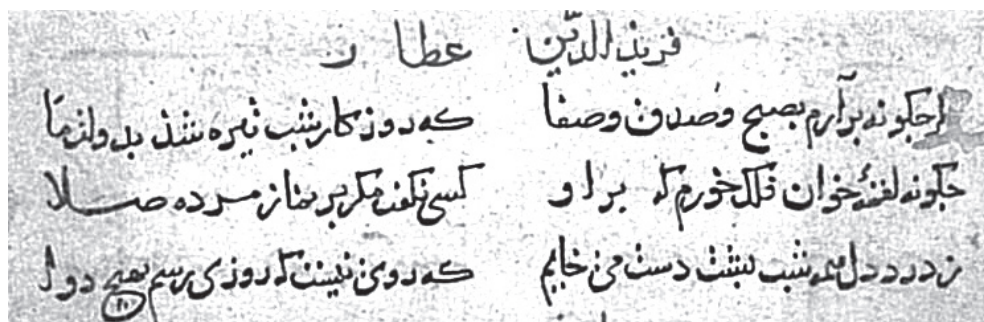 فریذ الدّین عطار
جکونه برآرم بصبح وصدق وصفا که روز کار شب تیره شذ
جکونه لقمهٔ خوان فلک خورم که براو کسی نکفت مکر بر نماز مرده صلا
ز درد دل همه شب ببشت دست می خایم که روی نیست که روزی رسم بهیچ دوا
۲۱